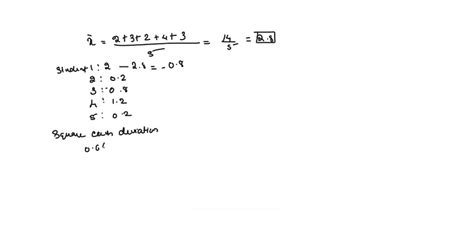 x̄ = 2+3+2+4+3 / 5 = 14 / 5 = 2.8
Student 1 : 2 - 2.8 = -0.8
2 : 0.2
3 : -0.8
4 : 1.2
5 : 0.2
Square each deviation
0.6